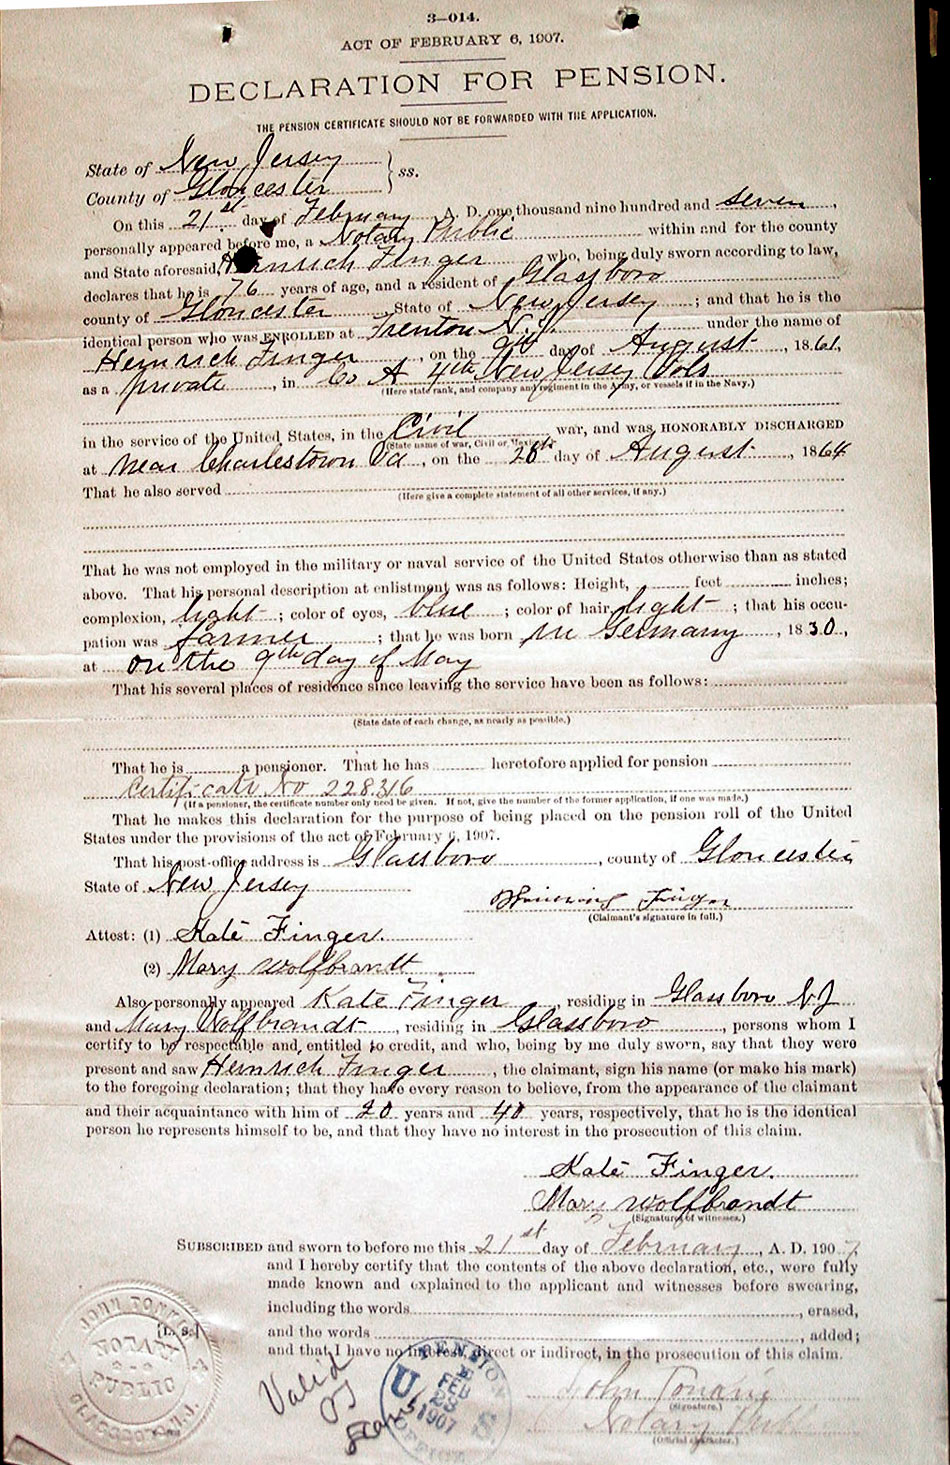 3—014.
ACT OF FEBRUARY 6, 1907.
DECLARATION FOR PENSION.
THE PENSION CERTIFICATE SHOULD NOT BE FORWARDED WITH THE APPLICATION.
State of New Jersey
County of Gloucester } ss.
On this 21st day of February A. D. one thousand nine hundred and seven,
personally appeared before me, a Notary Public within and for the county
and State aforesaid, Heinrich Finger who, being duly sworn according to law,
declares that he is 76 years of age, and a resident of Glassboro
county of Gloucester State of New Jersey; and that he is the
identical person who was ENROLLED at Trenton N.J. under the name of
Heinrich Finger, on the 9th day of August, 1861,
as a private, in Co A 4th New Jersey Vols
(Here state rank, and company and regiment in the Army, or vessels if in the Navy.)
in the service of the United States, in the Civil war, and was HONORABLY DISCHARGED
(State name of war, Civil or Mexican.)
at near Charlestown Va, on the 28th day of August, 1864
That he also served
(Here give a complete statement of all other services, if any.)
That he was not employed in the military or naval service of the United States otherwise than as stated
above. That his personal description at enlistment was as follows: Height, feet inches;
complexion, light; color of eyes, blue; color of hair, light; that his occu-
pation was farmer; that he was born in Germany, 1830,
at on the 9th day of May
That his several places of residence since leaving the service have been as follows:
(State date of each change, as nearly as possible.)
That he is a pensioner. That he has heretofore applied for pension
Certificate No 228316
(If a pensioner, the certificate number only need be given. If not, give the number of the former application, if one was made.)
That he makes this declaration for the purpose of being placed on the pension roll of the United
States under the provisions of the act of February 6, 1907.
That his post-office address is Glassboro, county of Gloucester
State of New Jersey
Finger
(Claimant's signature in full.)
Attest: (1) Kate Finger.
(2) Mary Wolfbrandt
Also personally appeared Kate Finger, residing in Glassboro N J
and Mary Wolfbrandt, residing in Glassboro, persons whom I
certify to be respectable and entitled to credit, and who, being by me duly sworn, say that they were
present and saw Heinrich Finger, the claimant, sign his name (or make his mark)
to the foregoing declaration; that they have every reason to believe, from the appearance of the claimant
and their acquaintance with him of 20 years and 40 years, respectively, that he is the identical
person he represents himself to be, and that they have no interest in the prosecution of this claim.
Kate Finger.
Mary Wolfbrandt
(Signatures of witnesses.)
SUBSCRIBED and sworn to before me this 21st day of February, A. D. 1907,
and I hereby certify that the contents of the above declaration, etc., were fully
made known and explained to the applicant and witnesses before swearing,
including the words, erased,
[L. S.] and the words, added;
and that I have no interest, direct or indirect, in the prosecution of this claim.
John
(Signature.)
Notary Public
(Official character.)
JOHN
NOTARY
PUBLIC
GLASSBORO N.J.
Valid
U.S. PENSION OFFICE
FEB
23
1907